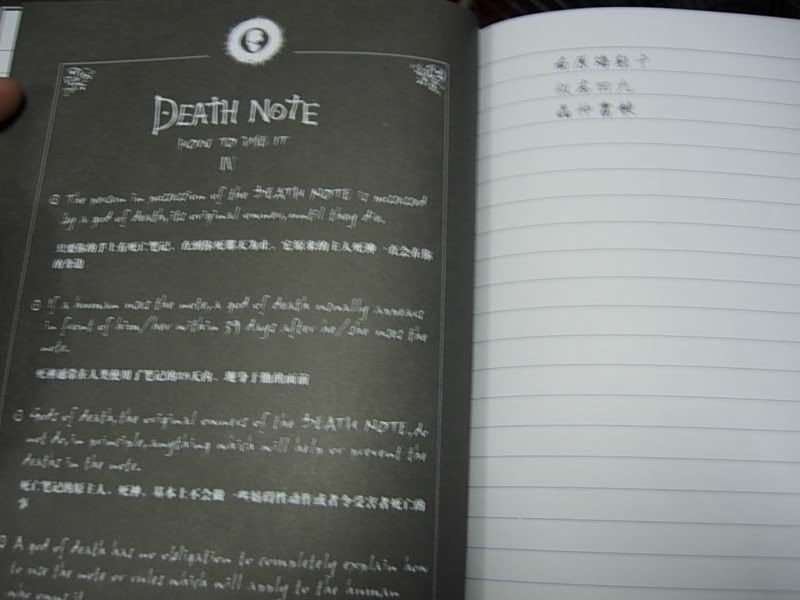 DEATH NOTE
HOW TO USE IT
IV
The person in possession of the DEATH NOTE is possessed
by a god of death, its original owner, until they die.
If a human uses the note, a god of death usually appears
in front of him/her within 39 days after he/she uses the
note.
死神通常在人类使用了笔记的39天内、现身于他的面前
Gods of death, the original owners of the DEATH NOTE, do
not do, in principle, anything which will help or prevent the
deaths in the note.
死亡笔记的原主人、死神、基本上不会做一些协助性动作或者令受害者死亡的
事
A god of death has no obligation to completely explain how
to use the note or rules which will apply to the human
who owns it